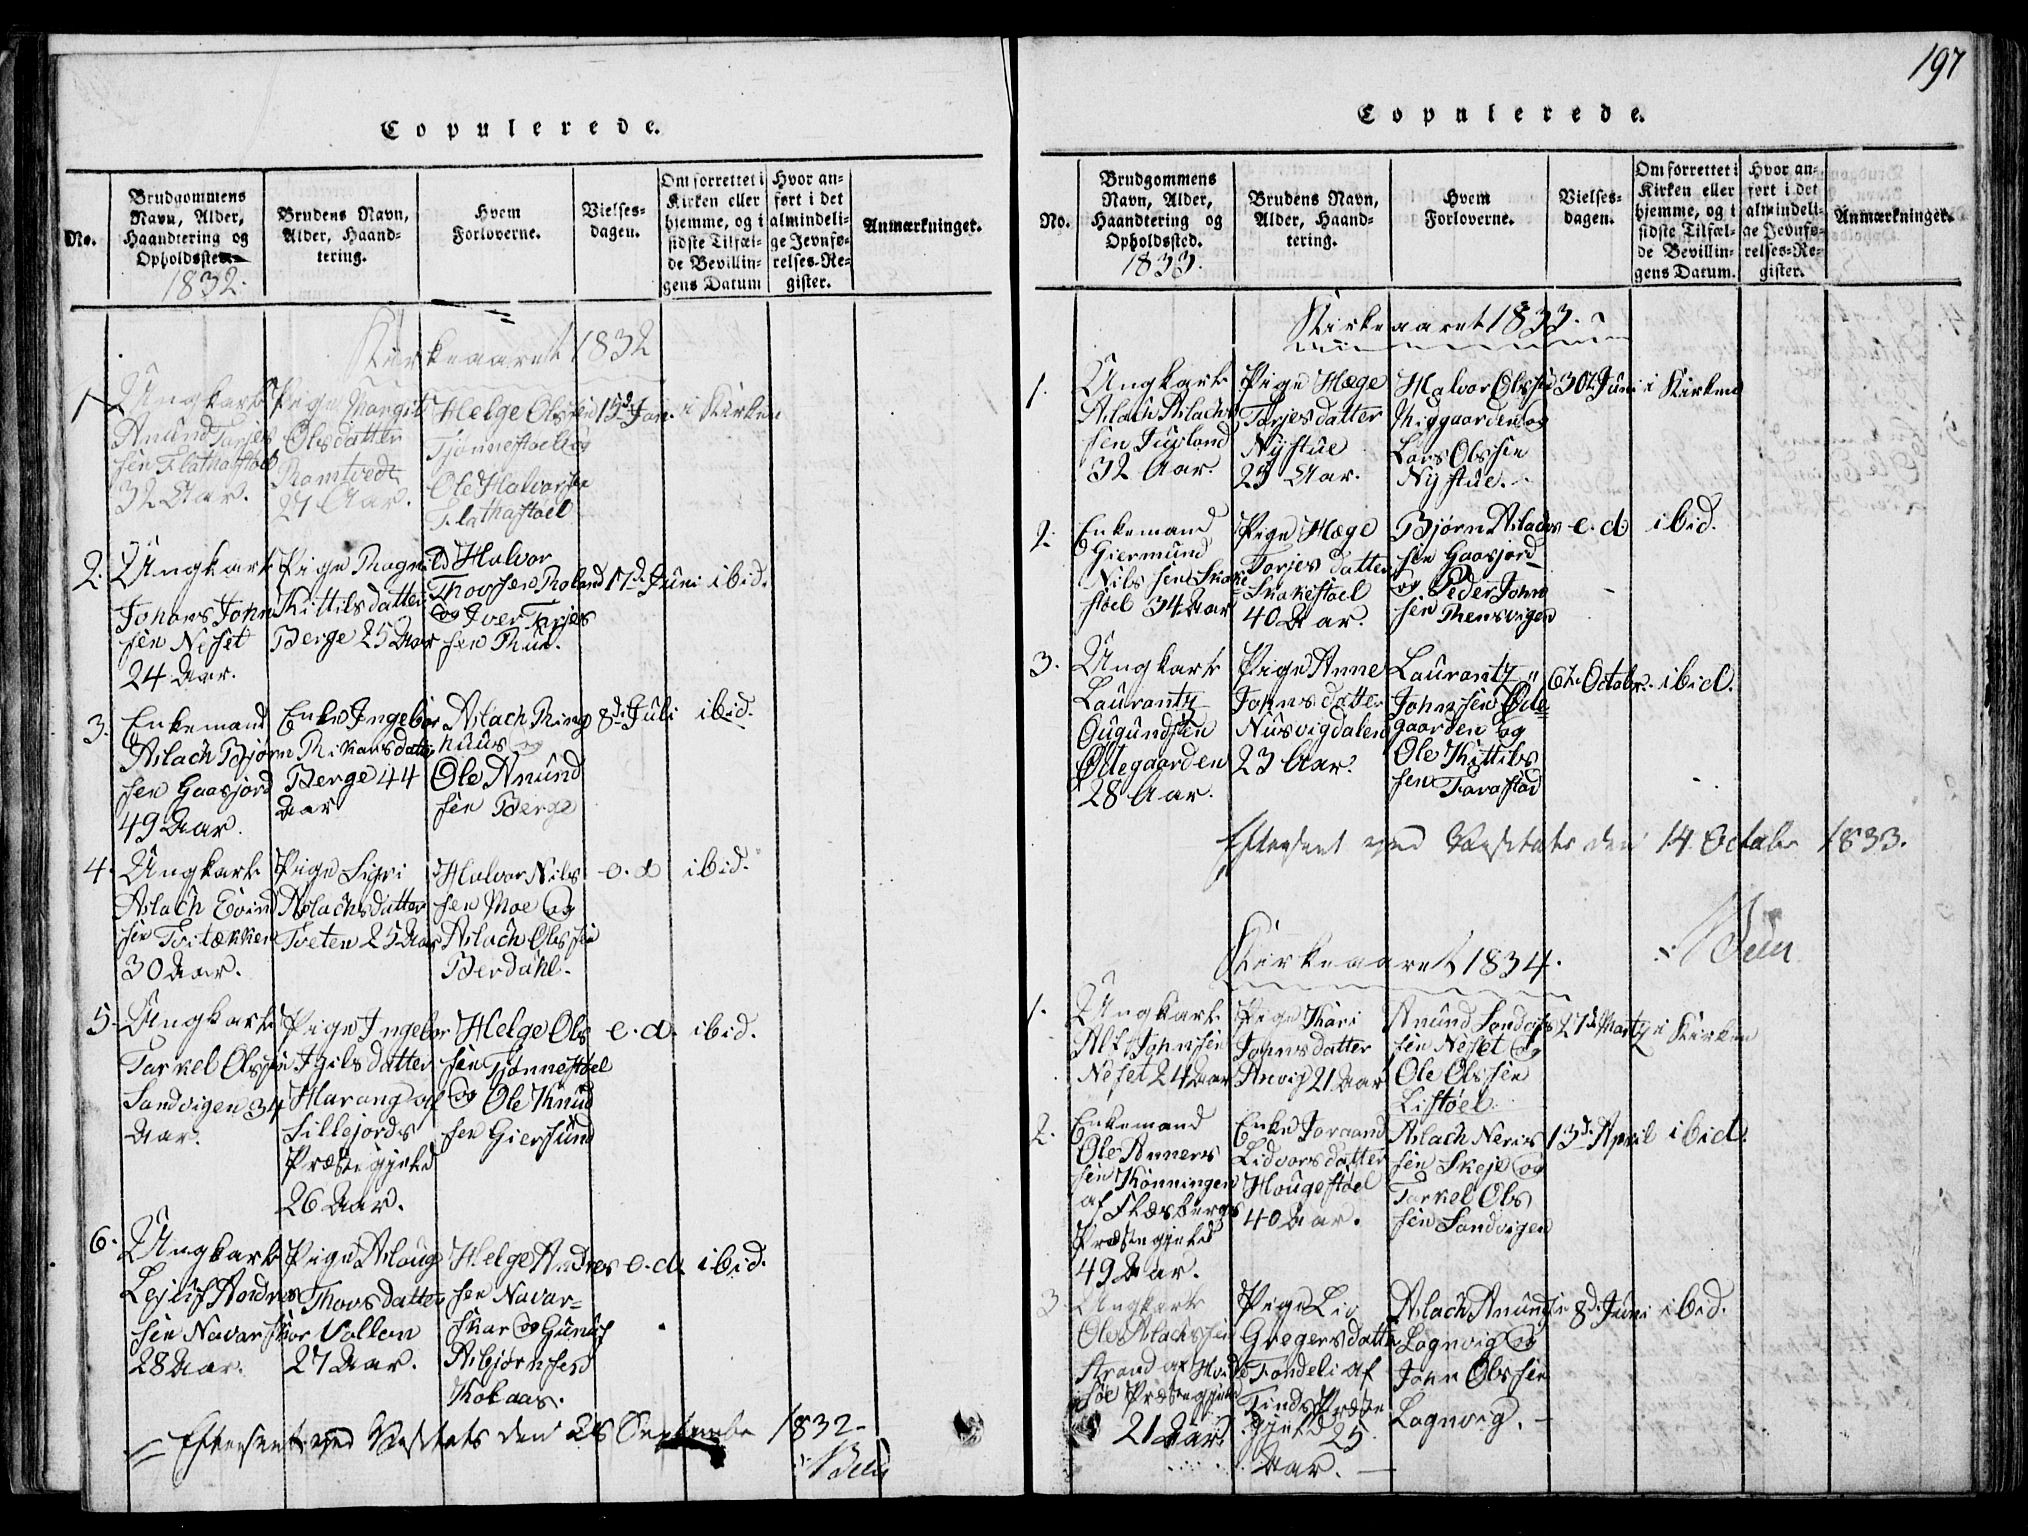 Copulerede.
No.
Brudgommens
Navn, Alder,
Haandtering og
Opholdssted.
1832.
Brudens Navn,
Alder, Haand-
tering.
Hvem
Forloverne.
Vielses-
dagen.
Om forrettet i
Kirken eller
hjemme, og i
sidste Tilfæl-
de Bevillin-
gens Datum
Hvor an-
ført i det
almindeli-
ge Jevnfø-
relses-Re-
gister.
Anmærkninger.
Kirkeaaret 1832
1.
Ungkarl
Anund Tarjes
sen Flathastoel
32 Aar.
Pige Margit
Olsdatter
Ramtvedt
27 Aar.
Helge Olssen
Tjønnestoel og
Ole Halvorsen
Flathastoel
Jan.
i Kirken
2.
Ungkarl
Johans John
sen Neset
24 Aar.
Pige Ragnild
Kittilsdatter
Berge 25 Aar
Halvor
Thovssen Roland
og Iver Tarjes
sen Rue.
17d Juni
ibid.
3.
Enkemand
Aslach Bjørn
sen Gaasjord
49 Aar.
Enke Ingebor
Rikarsdatter
Berge 44
Aar
Aslach Ring
huus og
Ole Anund
sen Berge
8d Juli
ibid.
4.
Ungkarl
Aslach Eivind
sen Tvitækken
30 Aar.
Pige Sigri
Aslachsdatter
Tveten 25 Aar
Halvor Nils
sen Moe og
Aslach Olssen
Berdahl.
e. d
ibid.
5.
Ungkarl
Tarkel Olssen
Sandvigen 34
Aar.
Pige Ingebor
Igilsdatter
Harang af
Sillejords
Præstegjeld
26 Aar.
Helge Ols
sen Tjønnestoel
og Ole Knud
sen Giersund
e. d.
ibid.
6.
Ungkarl
Lejlif Andres
sen Navarskor
28 Aar.
Pige Aslaug
Thovsdatter
Vollan
27 Aar.
Helge Andres
sen Navar=
skar og Gunuf
Asbjørnsen
Kolaas.
e. d.
ibid.
Efterseet ved Visitats den 26 September 1832
197
Copulerede.
No.
Brudgommens
Navn, Alder,
Haandtering og
Opholdssted.
1833.
Brudens Navn,
Alder, Haand-
tering.
Hvem
Forloverne.
Vielses-
dagen.
Om forrettet i
Kirken eller
hjemme, og i
sidste Tilfæl-
de Bevillin-
gens Datum.
Hvor an-
ført i det
almindeli-
ge Jevnfø-
relses-Re-
gister.
Anmærkninger.
Kirkeaaret 1833.
1.
Ungkarl
Aslach Aslachs
sen Juvland
32 Aar.
Pige Hæge
Tarjesdatter
Nystue
25 Aar.
Halvor Olssen
Midgaarden og
Lars Olssen
Nystue.
30t Juni
i Kirken
2.
Enkemand
Giermund
Nilssen Skake
stoel 34 Aar
Pige Hæge
Torjesdatter
Skakestoel
40 Aar.
Bjørn Aslachs
sen Gaasjord
og Peder John
sen Rensvigen
e. d
ibid.
3.
Ungkarl
Laurantz
Øugundsen
Ødegaarden
28 Aar.
Pige Anne
Johnsdatter
Nusvigdalen
23 Aar.
Laurantz
Johnssen Øde=
gaarden og
Ole Kittils
sen Tarastad
6te Octobr.
ibid.
Efterseet ved Visitats den 14 October 1833.
Kirkeaaret 1834.
1.
Ungkarl
Alf Johnsen
Neset 24 Aar
Pige Kari
Johnsdatter
Anvig 21 Aar
Anund Sondres
sen Neset og
Ole Olssen
Listøel
27d Martz
i Kirken
2.
Enkemand
Ole Anners
sen Kønningen
af Flæsbergs
Præstegjeld
49 Aar.
Enke Joraand
Lidvorsdatter
Hougestoel
40 Aar.
Aslach Neris
sen Skeje og
Tarkel Ols
sen Sandvigen
13d April
ibid.
3.
Ungkarl
Ole Aslachssen
Strand af Hvide
søe Præstegjeld
21 Aar
Pige Liv
Gregersdatter
Tondeli af
Tinds Præste
gjeld 25
Aar.
Aslach Anundsen
Lognvig og
John Olssen
Lognvig.
8d Juni
ibid.